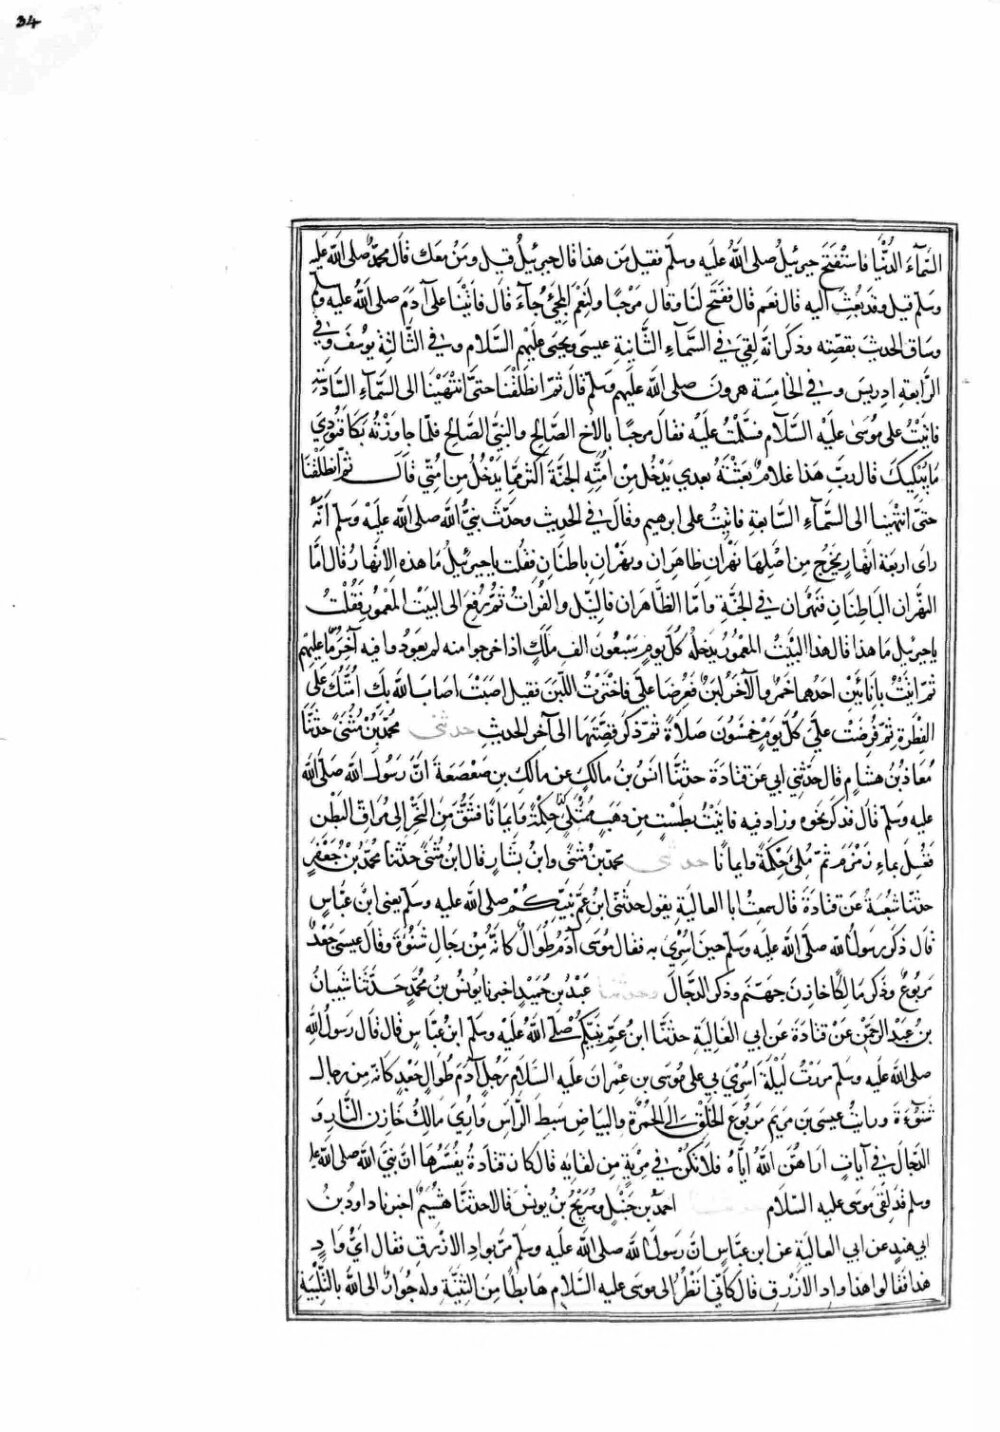 34
السَّمَآءَ الدُّنْيَا فَاسْتَفْتَحَ جبرئيلُ صلى الله عليه وسلم فقيل مَن هذا قال جبرئيلُ قيل ومَنْ معَك قال محمّدٌ صلى الله عليه
وسلم قيل وقد بُعِثَ اليه قال نعَم قال ففَتَحَ لنَا وقال مَرْحبًا ولَنِعْمَ المجيُ جآءَ قال فاتَيْنَا على آدَمَ صلى الله عليه وسلم
وساق الحديثَ بقصّتِه وذكر انّه لَقِيَ في السَّمآءِ الثَّانِيَةِ عيسى ويحيى عليهم السّلام وفي الثّالثةِ يوسُفَ وفي
الرَّابعةِ ادريسَ وفي الخامِسَةِ هرونَ صلى الله عليهم وسلم قال ثمّ انطَلَقْنَا حتّى انتهَيْنَا الى السَّمآءِ السَّادِسَةِ
فاتيْتُ على مُوسَى علَيْهِ السَّلام فسَلَّمْتُ عليْه فقال مرحبًا بالاخ الصّالحِ والنبيّ الصّالح فلمّا جاوَزْتُه بَكَا فنُودِيَ
مَا يُبْكِيكَ قال رَبّ هَذا غلامٌ بعَثْتَهُ بعدي يَدْخُلُ مِنْ اُمّتِهِ الجنّةَ اكثرُ ممّا يَدْخُلُ مِن اُمّتي قال ثمّ انطَلَقْنَا
حتّى انتهَيْنا الى السَّمآءِ السَّابعةِ فاتيْتُ على ابرهيم وقال في الحديث وحَدّثَ نبيُّ الله صلى الله عليْه وسلم انّهُ
راى اربَعة انهارٍ يَخرُجُ مِن اصْلِهَا نَهْرانِ ظاهِرَانِ ونَهْرانِ باطنَانِ فقلت يا جبرئيلُ مَا هذه الانهَارُ قال امّا
النَّهْرانِ البَاطِنانِ فنَهْرَان في الجنَّةِ وامّا الظّاهِرَان فالنِّيل والفُراتُ ثمّ رُفِعَ الى البَيْتُ المعْمُور فقُلتُ
يا جبرئيل مَا هذا قال هذا البَيْتُ المعْمُورُ يدخلهُ كلّ يومٍ سَبْعُونَ الف ملَكٍ اذا خرجوا منه لم يعودُوا فيه آخِرُ مَا عليْهم
ثمّ اتيتُ بِانائَيْنِ احدُهما خَمرٌ والآخَرُ لبَنٌ فعُرِضَا عليّ فاختَرْتُ اللّبنَ فقيل اصَبْتَ اصَابَ الله بِك اُمّتُكَ على
الفِطْرَةِ ثمّ فُرِضَتْ عليَّ كُلّ يَوْمٍ خَمْسُونَ صَلاةً ثمّ ذكَر قصّتَها الى آخر الحديثِ حدثنى محمّد بن مُثَنَّى حدّثنا
مُعاذ بن هشامٍ قال حدّثني ابي عَن قتادَة حدّثنا انَسُ بنُ مالكٍ عن مالكِ بن صَعْصَعَةَ انّ رَسُولَ الله صلّى الله
عليه وسلم قال فذكر نحوه وزاد فيه فاتيْتُ بطَسْتٍ مِن ذهَبٍ مُمْتلئٍ حِكمَةً وايمانًا فشُقَّ مِنَ النّحرِ الى مَراقّ البَطْنِ
فغُسِلَ بماءِ زَمْزَمَ ثمّ مُلئ حِكمةً وايمانًا حدثنى محمّد بن مُثنى وابن بشارٍ قال ابن مُثنى حدّثنا محمّد بن جعفرٍ
حدّثنا شعبةُ عن قتادة قال سمعتُ ابا العاليةِ يقول حدّثني ابن عَمّ نَبيّكم صلى الله عليه وسلم يعنى ابن عبّاسٍ
قال ذكر رَسُولُ الله صلى الله عليه وسلم حينَ اُسْرِيَ به فقال موسى آدَمُ طُوَالٌ كانّهُ مِنْ رجَالِ شَنُوءَةَ وقال عيسى جَعْدٌ
مَربُوعٌ وذكر مَالكًا خازِنَ جهنّم وذكر الدّجّال وحدثنا عبد بن حُمَيْدٍ اخبرنا يونس بن محمّدٍ حَدّثنا شَيْبَانُ
بن عبد الرّحمن عَن قتادَةَ عَن ابي العَالِيةِ حدّثنا ابن عمّ نبيّكم صلى اللهُ عليْه وسلم ابن عبّاس قال قال رسول الله
صلى الله عليه وسلم مررتُ ليْلَةَ اُسْرِيَ بي على موسى بن عمرانَ عليه السّلام رَجُلٍ آدَمَ طُوالٍ جَعْدٍ كانّه مِن رجال
شَنُوءَةَ ورايتُ عيسى بن مريم مَربُوعَ الخَلْق الى الحُمْرَةِ والبياضِ سَبِطَ الرّأسِ واُرِيَ مَالكَ خازِن النَّارِ و
الدّجّال في آياتٍ اراهُنّ اللهُ ايّاهُ فلا تكُنْ في مِريَةٍ مِن لقائِه قال كان قتادةُ يفَسّرُها انّ نبيّ الله صلى الله عليه
وسلم قد لَقِيَ موسى عليه السّلام حدثنا احمد بن حنبلٍ وسُرَيْجُ بن يونسَ قالا حدّثنا هُشَيْمٌ اخبرنا داودُ بنُ
ابي هندٍ عن ابي العاليةِ عن ابن عبّاسٍ انّ رسولَ الله صلى الله عليه وسلم مرّ بوادِ الازرقِ فقال ايُّ وَادٍ
هذا فقالوا هذا وادِ الازرقِ قال كانّي انظرُ الى موسى عليه السّلام هابطًا مِنَ الثّنيّةِ وله جُوَارٌ الى الله بالتّلبيَةِ